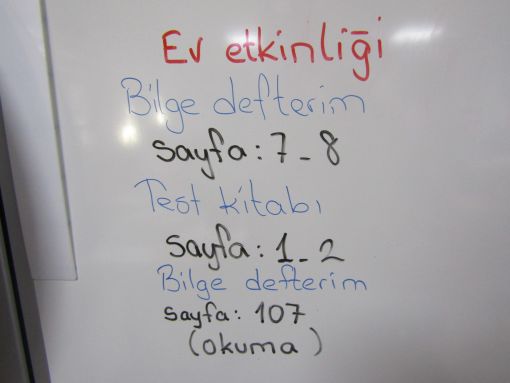 Ev etkinliği
Bilge defterim
sayfa: 7-8
Test kitabı
sayfa: 1-2
Bilge defterim
sayfa: 107
(okuma)